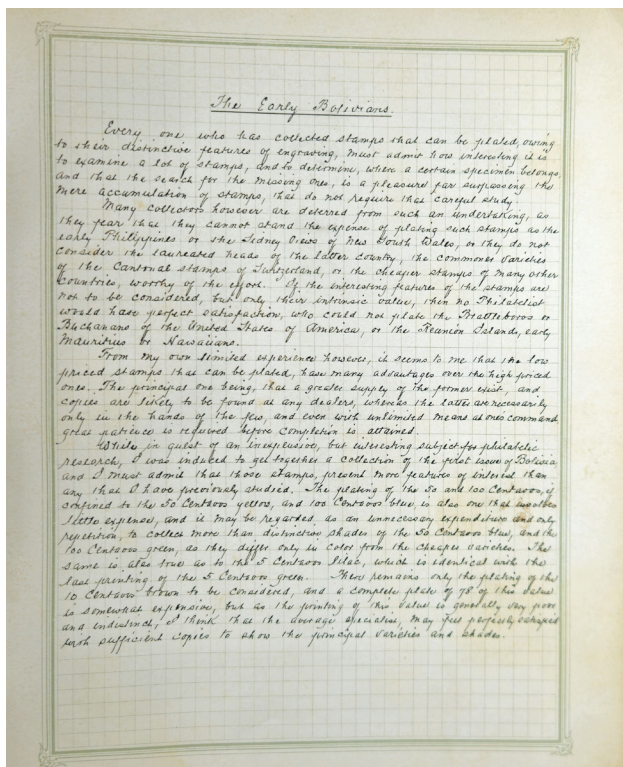 The Early Bolivians.
Every one who has collected stamps that can be plated, owing
to their distinctive features of engraving, must admit how interesting it is
to examine a lot of stamps, and to determine, where a certain specimen belongs,
and that the search for the missing one, is a pleasure far surpassing the
mere accumulation of stamps, that do not require that careful study.
Many collectors however are deterred from such an undertaking, as
they fear that they cannot stand the expense of plating such stamps as the
early Philippines or the Sidney Views of New South Wales, or they do not
consider the laureated heads of the latter country, the commoner varieties
of the Cantonal stamps of Switzerland, or the cheaper stamps of many other
countries, worthy of the effort. If the interesting features of the stamps are
not to be considered, but only their intrinsic value, then no Philatelist
would have perfect satisfaction, who could not plate the Brattleboros or
Buchanans of the United States of America, or the Reunion Islands, early
Mauritius or Hawaiians.
From my own limited experience however, it seems to me that the low
priced stamps that can be plated, have many advantages over the high priced
ones. The principal one being, that a greater supply of the former exist, and
copies are likely to be found at any dealers, whereas the latter are necessarily
only in the hands of the few, and even with unlimited means at one's command
great patience is required before completion is attained.
While in quest of an inexpensive, but interesting subject for philatelic
research, I was induced to get together a collection of the first issue of Bolivia
and I must admit that those stamps, present more features of interest than
any that I have previously studied. The plating of the 50 and 100 Centavos, if
confined to the 50 Centavos yellow, and 100 Centavos blue, is also one that involves
little expense, and it may be regarded, as an unnecessary expenditure and only
repetition, to collect more than distinctive shades of the 50 Centavos blue, and the
100 Centavos green, as they differ only in color from the cheaper varieties. The
same is also true as to the 5 Centavos lilac, which is identical with the
last printing of the 5 Centavos green. There remains only the plating of the
10 Centavos brown to be considered, and a complete plate of 78 of this value
is somewhat expensive, but as the printing of this value is generally very poor
and indistinct, I think that the average specialist, may feel perfectly satisfied
with sufficient copies to show the principal varieties and shades.